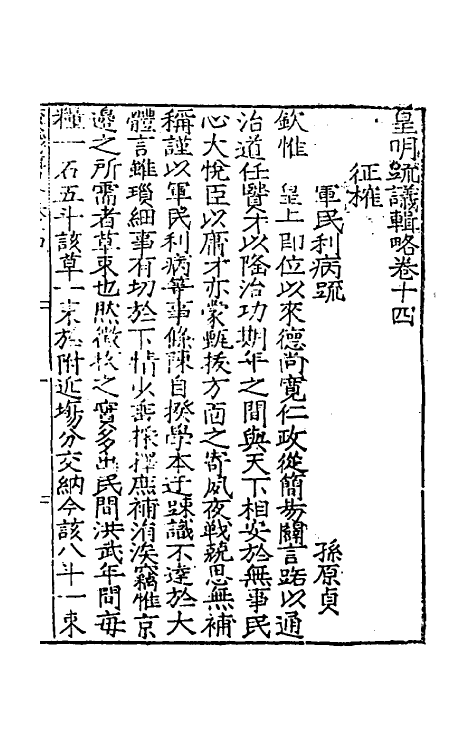 皇明疏議輯略卷十四
征榷
軍民利病疏
孫原貞
欽惟 皇上即位以來德尚寬仁政從簡易關言路以通
治道任賢才以隆治功期年之間與天下相安於無事民
心大悅臣以庸才亦蒙甄拔方面之寄夙夜戰兢思無補
稱謹以軍民利病等事條陳自揆學本迂踈識不達於大
體言雖瑣細事有切於下情少垂採擇庶補涓涘竊惟京
邊之所需者草束也然徵收之實多出民間洪武年間每
糧一石五斗該草一束於附近塲分交納今該八斗一束